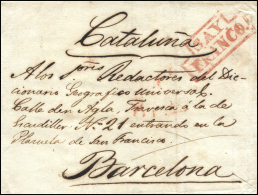 Cataluña
SAX.
FRANCO
A los Sres Redactores del Dic-
cionario Geografico Universal.
Calle den Agla, Travesa á la de
Escudiller Nº 21 entrando en la
Plazuela de San Francisco
Barcelona